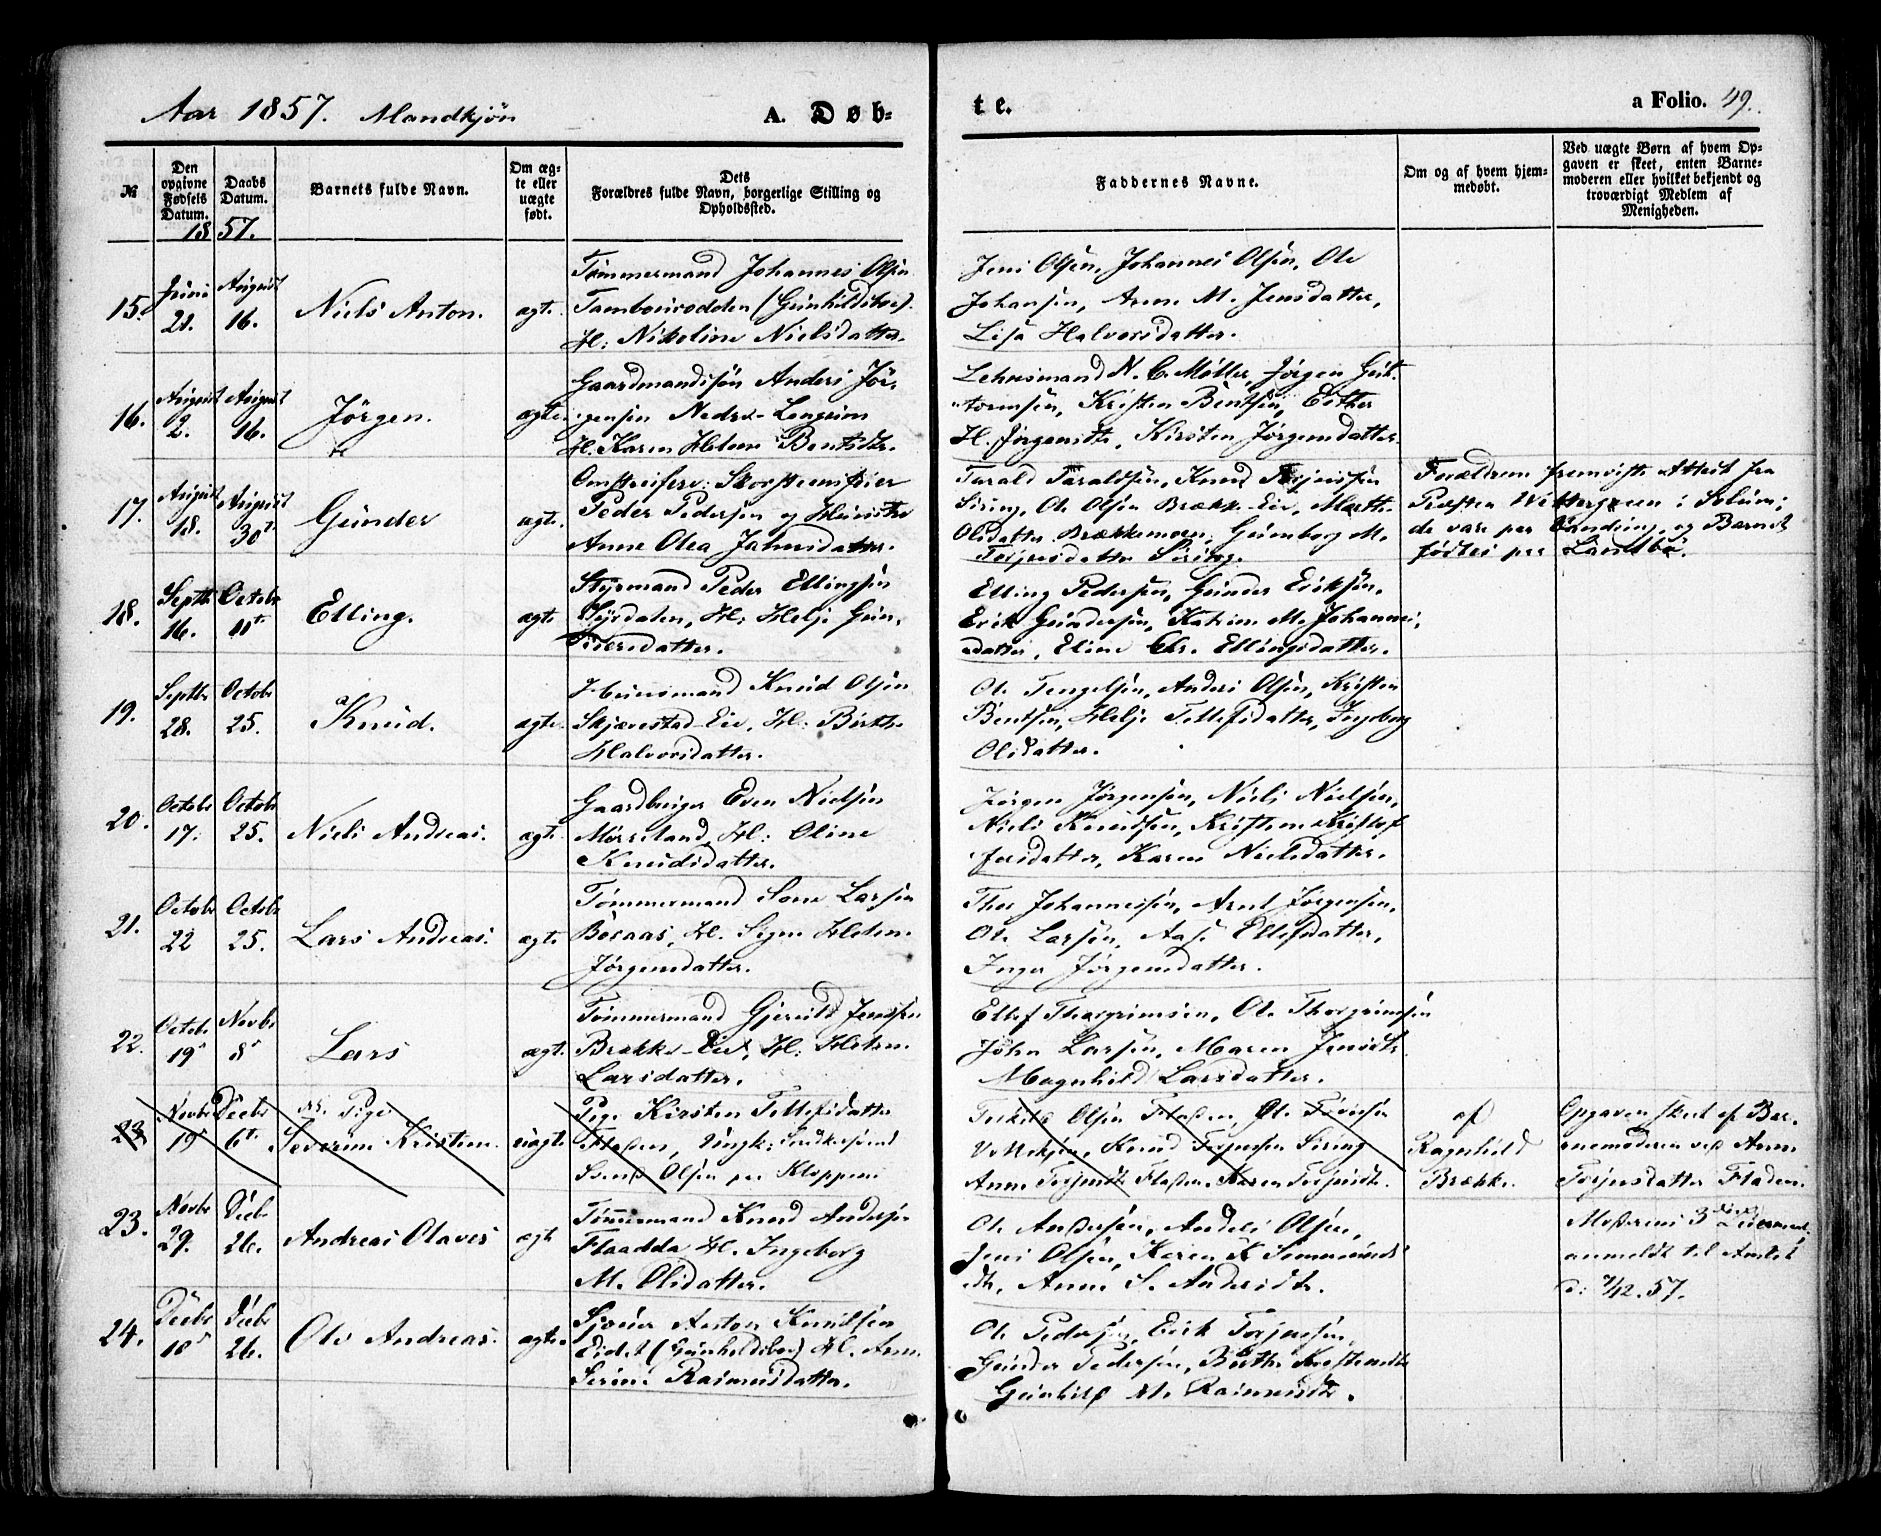 Aar 1857. Mandkjøn
A. Døb-
te.
a Folio. 49.
№
Den opgivne Fødsels Datum.
Daabs Datum.
Barnets fulde Navn.
Om ægte eller uægte født.
Dets Forældres fulde Navn, borgerlige Stilling og Opholdssted.
Faddernes Navne.
Om og af hvem hjemmedøbt.
Ved uægte Børn af hvem Opgaven er skeet, enten Barnemoderen eller hvilket bekjendt og troværdigt Medlem af Menigheden.
1857.
15.
Juni 21.
August 16.
Niels Anton.
ægte.
Tømmermand Johannes Olsen
(Gunhildsboe).
H: Nikoline Nielsdatter.
Jens Olsen, Johannes Olsen, Ole
Johansen, Anne M. Jensdatter,
Lisa Halvorsdatter.
16.
August 2.
August 16.
Jörgen.
ægte
Gaardmandssøn Anders Jör-
gensen Nedre-Lengeim
H. Karen Helene Bentsdtr.
Lehnsmand N. C. Møller, Jörgen Gut-
tormsen, Kristen Bentsen,
H. Jörgensdtr, Kirsten Jørgensdatter.
17.
August 18.
August 30te
Gunder
ægte.
Omstreifere: Skorsteensfeier
Peder Pedersen og Hustru
Anne Olea Johnsdatter.
Tarald Taraldsen, Knud Terjussen
Siring, Ole Olsen Brække-Eie, Marthe
Olsdatter Brækkemoen, Gunborg M.
Terjusdatter Siring.
Forældrene fremviste Attest fra
Presten Wettergreen i Solum;
de vare paa Vandring, og Barnet
födtes paa Landbö.
18.
Septbr 16.
Octobr 11te
Elling.
ægte
Styrmand Peder Ellingsen
H: Helje Gun-
dersdatter.
Elling Pedersen, Gunder Eriksen,
Erik Gundersen, Katrine M. Johannes-
datter, Eline Chr. Ellingsdatter.
19.
Septbr 28.
Octobr 25.
Knud.
ægte.
Huusmand Knud Olsen
Skjævestad-Eie, H: Birthe
Halvorsdatter.
Ole Tengelsen, Anders Olsen, Kristen
Bentsen, Helje Tellefsdatter, Ingeborg
Olsdatter.
20.
Octobr 17.
Octobr 25.
Niels Andreas.
ægte.
Gaardbruger Even Nielsen
Møreland, H: Oline
Knudsdatter.
Jörgen Jørgensen, Niels Nielsen,
Niels Knudsen, Kristine Kristof-
fersdatter, Karen Nielsdatter.
21.
Octobr 22
Octobr 25.
Lars Andreas.
ægte
Tømmermand Sone Larsen
Boraas, H. Signe Helene
Jörgensdatter.
Thor Johannessen, Arnt Jörgensen,
Ole Larsen, Aase Ellefsdatter,
Inger Jörgensdatter.
22.
Octobr 19
Novbr 8
Lars
ægt.
Tømmermand Gjeruld Jensen
Brække-Eiet, H: Helene
Larsdatter.
Ellef Thorgrimsen, Ole Thorgrimsen
John Larsen, Maren Jensdtr
Magnhild Larsdatter.
23
Novbr 19
Decbr 6te
NB. Pige
Severine Kristine.
uægte
Pige Kirsten Tellefsdatter
Fladen, Ungk:
Svend Olsen paa Kloppene
Olsen Fladen, Ole
Knud Terjussen Siring
Anne Terjusdtr Fladen, Karen Terjusdtr.
af
Ragnhild
Brække.
Opgaven skeet af Bar-
nemoderen ved Anne
Torjusdatter Fladen.
Moderens 3die Leiermaal
anmeldt til Amtet
d: 7/12. 57.
23.
Novbr 29.
Decbr 26.
Andreas Olaves
ægte
Tømmermand Knud Andersen
Flaadda H. Ingeborg
M. Olsdatter.
Ole Andersen, Anders Olsen,
Jens Olsen, Karen K Simmunds-
dtr, Anne S. Andersdtr.
24.
Decbr 10
Decbr 26.
Ole Andreas.
ægte.
Anton Knudsen
Eidet (Gunhildsboe) H. Anne
Serine Rasmusdatter.
Ole Pedersen, Erik Torjussen,
Gunder Pedersen, Birthe Kristensdtr
Gunhild M. Rasmusdtr.